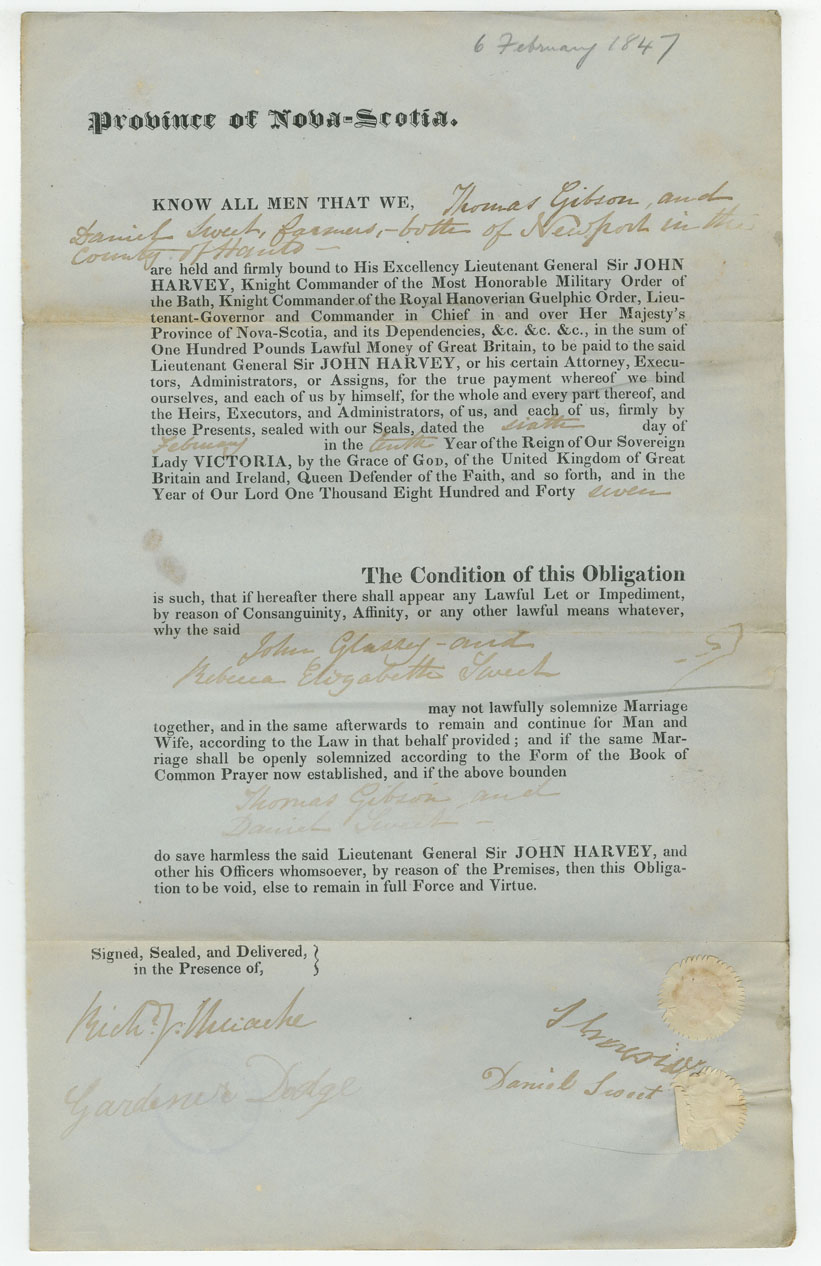 6 February 1847
Province of Nova-Scotia.
KNOW ALL MEN THAT WE, Thomas Gibson, and
Daniel Sweet, farmers, - both of Newport in the
County of Hants -
are held and firmly bound to His Excellency Lieutenant General Sir JOHN
HARVEY, Knight Commander of the Most Honorable Military Order of
the Bath, Knight Commander of the Royal Hanoverian Guelphic Order, Lieu-
tenant-Governor and Commander in Chief in and over Her Majesty's
Province of Nova-Scotia, and its Dependencies, &c. &c. &c., in the sum of
One Hundred Pounds Lawful Money of Great Britain, to be paid to the said
Lieutenant General Sir JOHN HARVEY, or his certain Attorney, Execu-
tors, Administrators, or Assigns, for the true payment whereof we bind
ourselves, and each of us by himself, for the whole and every part thereof, and
the Heirs, Executors, and Administrators, of us, and each of us, firmly by
these Presents, sealed with our Seals, dated the sixth day of
February in the tenth Year of the Reign of Our Sovereign
Lady VICTORIA, by the Grace of GOD, of the United Kingdom of Great
Britain and Ireland, Queen Defender of the Faith, and so forth, and in the
Year of Our Lord One Thousand Eight Hundred and Forty seven
The Condition of this Obligation
is such, that if hereafter there shall appear any Lawful Let or Impediment,
by reason of Consanguinity, Affinity, or any other lawful means whatever,
why the said
John Glassey - and
Rebecca Elizabeth Sweet
may not lawfully solemnize Marriage
together, and in the same afterwards to remain and continue for Man and
Wife, according to the Law in that behalf provided ; and if the same Mar-
riage shall be openly solemnized according to the Form of the Book of
Common Prayer now established, and if the above bounden
Thomas Gibson and
Daniel Sweet -
do save harmless the said Lieutenant General Sir JOHN HARVEY, and
other his Officers whomsoever, by reason of the Premises, then this Obliga-
tion to be void, else to remain in full Force and Virtue.
Signed, Sealed, and Delivered,
in the Presence of,
Richd. J. Uniacke
Gardener Dodge
Daniel Sweet